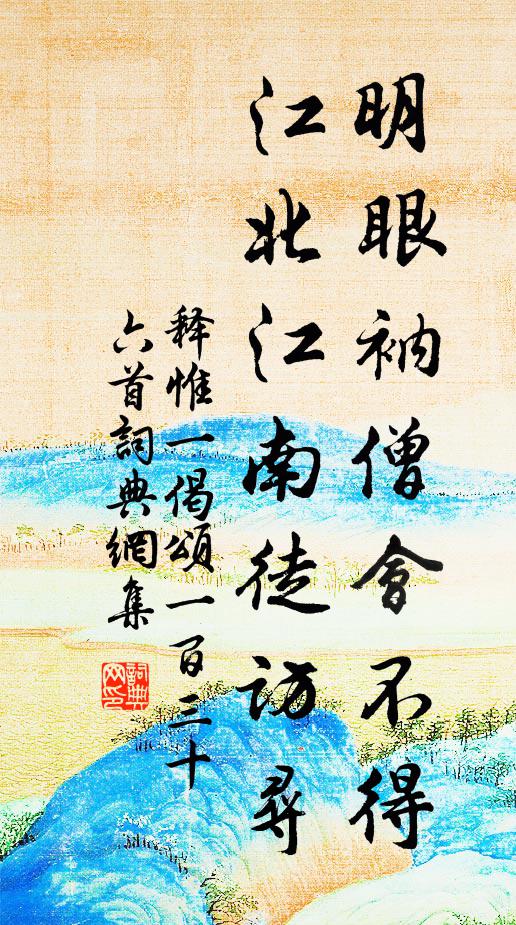 明眼衲僧會不得
江北江南徒訪尋
释惟一偈頌一百三十
六首詞典網集
詞典网印